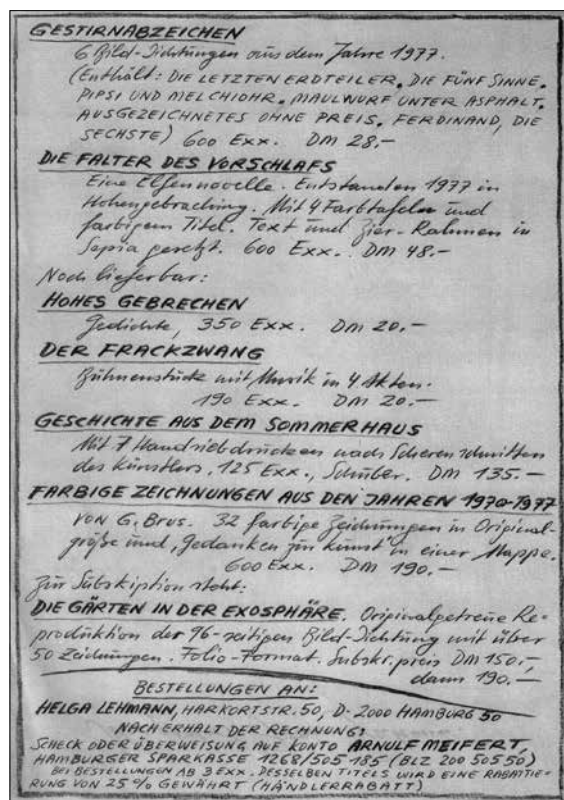 GESTIRNABZEICHEN
6 Bild-Dichtungen aus dem Jahre 1977.
(Enthält: DIE LETZTEN ERDTEILER. DIE FÜNF SINNE.
PIPSI UND MELCHIOHR. MAULWURF UNTER ASPHALT.
AUSGEZEICHNETES OHNE PREIS. FERDINAND, DIE
SECHSTE) 600 Exx. DM 28,-
DIE FALTER DES VORSCHLAFS
Eine Elfennovelle. Entstanden 1977 in
Hohengebraching. Mit 4 Farbtafeln und
farbigem Titel. Text und Zier-Rahmen in
Sepia gesetzt. 600 Exx. DM 48.-
Noch lieferbar:
HOHES GEBRECHEN
Gedichte, 350 Exx. DM 20.-
DER FRACKZWANG
Bühnenstück mit Musik in 4 Akten.
190 Exx. DM 20.-
GESCHICHTE AUS DEM SOMMERHAUS
Mit 7 Handsiebdrucken nach Scherenschnitten
des Künstlers. 125 Exx., Schuber. DM 135.-
FARBIGE ZEICHNUNGEN AUS DEN JAHREN 1970-1977
VON G. Brus. 32 farbige Zeichnungen in Original-
größe und "Gedanken zur Kunst" in einer Mappe.
600 Exx. DM 190.-
Zur Subskiption steht:
DIE GÄRTEN IN DER EXOSPHÄRE. Originalgetreue Re-
produktion der 96-seitigen Bild-Dichtung mit über
50 Zeichnungen. Folio-Format. Subskr.preis DM 150,-,
dann 190.-
BESTELLUNGEN AN:
HELGA LEHMANN, HARKORTSTR. 50, D-2000 HAMBURG 50
NACH ERHALT DER RECHNUNG:
SCHECK ODER ÜBERWEISUNG AUF KONTO ARNULF MEIFERT,
HAMBURGER SPARKASSE 1268/505 185 (BLZ 200 505 50)
BEI BESTELLUNGEN AB 3 EXX. DESSELBEN TITELS WIRD EINE RABATTIE-
RUNG VON 25% GEWÄHRT (HÄNDLERRABATT)